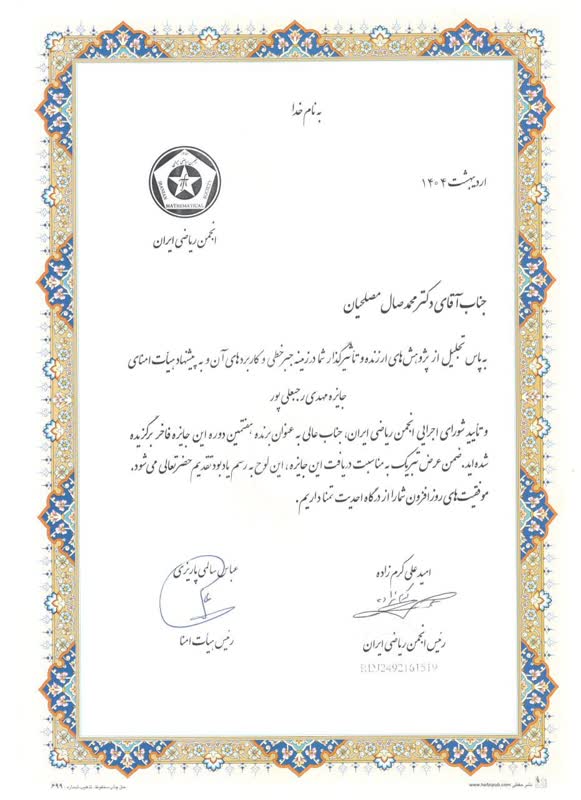 به نام خدا
اردیبهشت ۱۴۰۴
IRANIAN MATHEMATICAL SOCIETY
انجمن ریاضی ایران
جناب آقای دکتر محمد صال مصلحیان
به پاس تجلیل از پژوهش‌های ارزنده و تأثیرگذار شما در زمینه جبرخطی و کاربردهای آن و به پیشنهاد هیأت امنای
جایزه مهدی رجبعلی پور
و تایید شورای اجرایی انجمن ریاضی ایران، جناب عالی به عنوان برنده هفتمین دوره این جایزه فاخر برگزیده
شده‌اید. ضمن عرض تبریک به مناسبت دریافت این جایزه، این لوح به رسم یادبود تقدیم حضرتعالی می‌شود.
موفقیت‌های روزافزون شما را از درگاه احدیت تمنا داریم.
امید علی کرم زاده
عباس سالمی پاریزی
رئیس انجمن ریاضی ایران
رئیس هیأت امنا
RDJ2492161519
حق چاپ محفوظ، تذهیب شماره: ۶۹۹
www.hafezpub.com